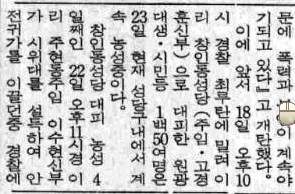 문에 폭력과 이 계속야
기되고 있다』고 개탄했다.
이에 앞서 18일 오후 10
시 경찰 최루탄에 밀려 이
리 창인동성당(주임·고경
훈신부)으로 대피한 원광
대생·시민등 1백50여명은
23일 현재 성당구내에서 계
속 농성중이다.
창인동성당 대피 농성 4
일째인 22일 오후11시경 이
리 주현동주임 이수현신부
가 시위대를 설득하여 안
전귀가를 이끌던중 경찰에